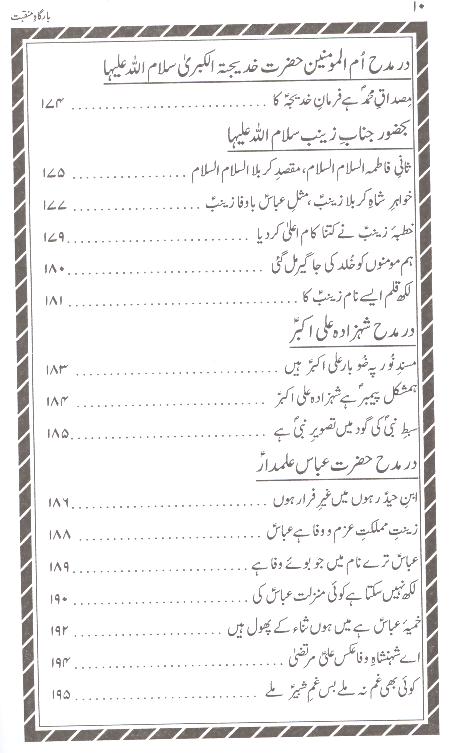 ۱۰
بارگاہ منقبت
در مدح اُم المومنین حضرت خدیجۃ الکبریٰ سلام اللہ علیہا
مصداقِ محمدؐ ہے فرمانِ خدیجہؑ کا ۱۷۴
بحضور جنابِ زینب سلام اللہ علیہا
ثانیٔ فاطمہ السلام السلام، مقصدِ کربلا السلام السلام ۱۷۵
خواہرِ شاہِ کربلا زینبؑ، مثلِ عباسؑ باوفا زینبؑ ۱۷۷
خطبۂ زینبؑ نے کتنا کام اعلیٰ کر دیا ۱۷۹
ہم مومنوں کو خُلد کی جاگیر مل گئی ۱۸۰
لکھ قلم ایسے نام زینبؑ کا ۱۸۱
در مدح شہزادہ علی اکبرؑ
مسندِ نُور پہ ضَو بار علی اکبرؑ ہیں ۱۸۳
ہمشکلِ پیمبرؐ ہے شہزادہ علی اکبرؑ ۱۸۴
سبطِ نبیؐ کی گود میں تصویرِ نبیؐ ہے ۱۸۵
در مدح حضرت عباس علمدارؑ
ابنِ حیدرؑ ہوں میں غیرِ فرار ہوں ۱۸۶
زینتِ مملکتِ عزم و وفا ہے عباسؑ ۱۸۸
عباسؑ ترے نام میں جو بوئے وفا ہے ۱۸۹
لکھ نہیں سکتا ہے کوئی منزلت عباسؑ کی ۱۹۰
خمیۂ عباسؑ ہے میں ہوں ثناء کے پھول ہیں ۱۹۲
اے شہنشاہِ وفا عکسِ علیؑ مرتضیٰؑ ۱۹۴
کوئی بھی غم نہ ملے بس غمِ شبیرؑ ملے ۱۹۵